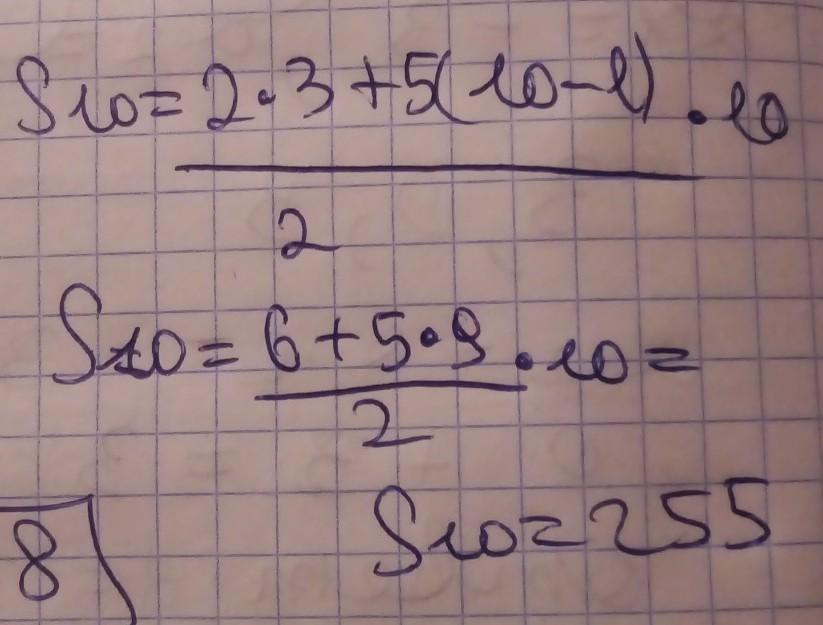 S10 = 2·3+5(10-1) · 10
2
S10 = 6+5·9 · 10 =
2
S10 = 255
8)